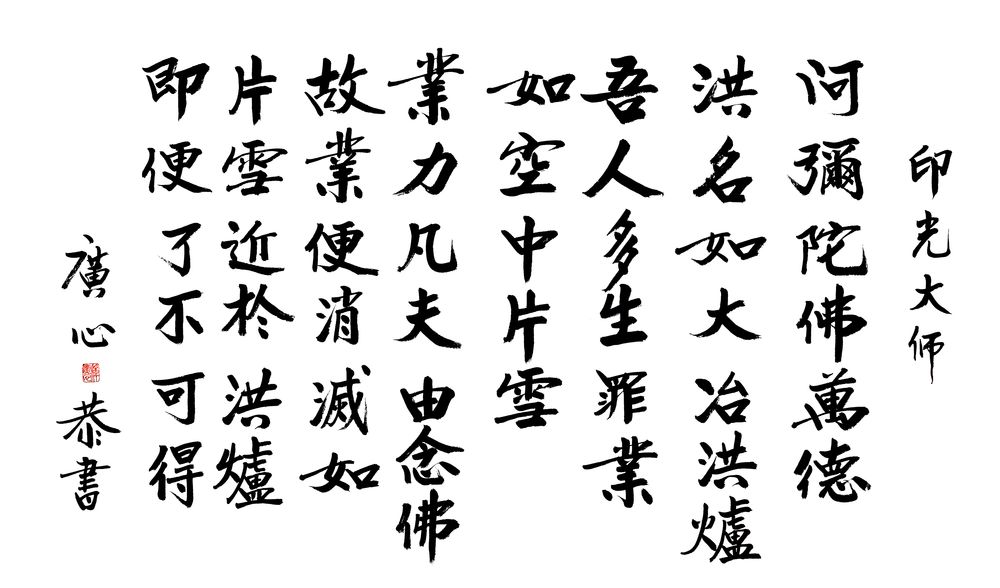 印光大师
阿彌陀佛萬德
洪名如大冶洪爐
吾人多生罪業
如空中片雪
業力凡夫由念佛
故業便消滅如
片雪近於洪爐
即便了不可得
廣心恭書